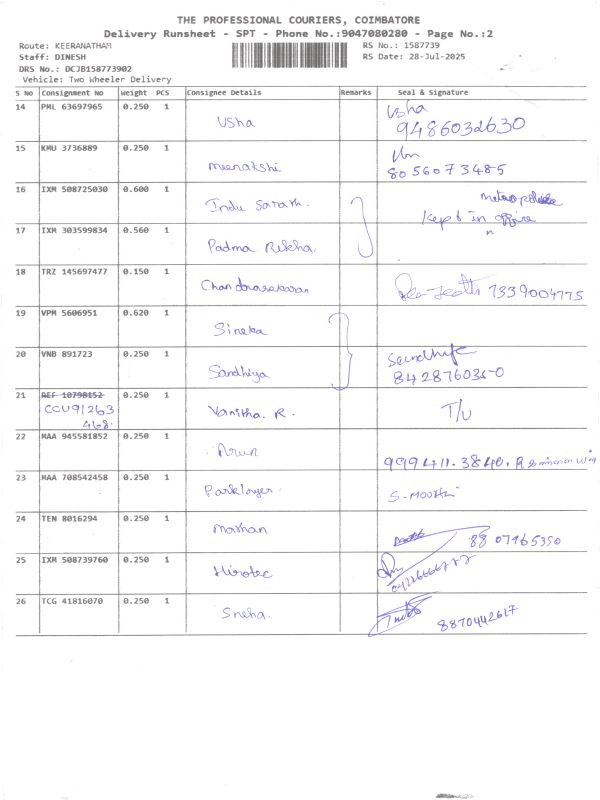 THE PROFESSIONAL COURIERS, COIMBATORE
Delivery Runsheet - SPT - Phone No.:9047080280 - Page No.:2
Route: KEERANATHAM
RS No.: 1587739
Staff: DINESH
RS Date: 28-Jul-2025
DRS No.: DCJB158773902
Vehicle: Two Wheeler Delivery
S NO Consignment No Weight PCS Consignee Details Remarks Seal & Signature
14 PML 63697965 0.250 1 Usha Usha
9486032630
15 KMU 3736889 0.250 1 Meenakshi
8056073485
16 IXM 508725030 0.600 1 Indu Sarath.
Kept in office
17 IXM 303599834 0.560 1 Padma Rekha.
18 TRZ 145697477 0.150 1 Chandrasekaran 7339004775
19 VPM 5606951 0.620 1 Sineka
20 VNB 891723 0.250 1 Sandhiya
8428760350
21 REF 10798152 0.250 1 Vanitha. R. T/U
CCU91263
468.
22 MAA 945581852 0.250 1 Arun
999411.3840.
23 MAA 708542458 0.250 1 S-MOOTHI
24 TEN 8016294 0.250 1 8807465350
25 IXM 508739760 0.250 1 Hirotec
26 TCG 41816070 0.250 1 Sneha. 8870442617